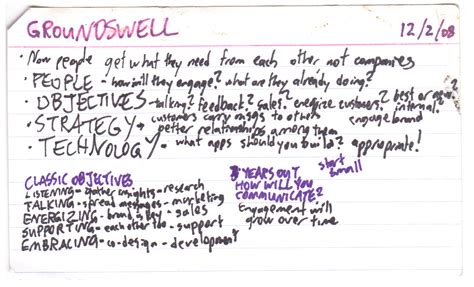 GROUNDSWELL 12/2/08
· Now people get what they need from each other not companies
· PEOPLE - how will they engage? what are they already doing?
· OBJECTIVES - talking? feedback? sales? energize customers? best or new? internal?
· STRATEGY → customers carry msgs to others engage brand
better relationships among them
· TECHNOLOGY - what apps should you build? appropriate!
CLASSIC OBJECTIVES
LISTENING - gather insights - research
TALKING - spread messages - marketing
ENERGIZING - brand is key - sales
SUPPORTING - each other too - support
EMBRACING - co-design - development
YEARS OUT
HOW WILL YOU
COMMUNICATE?
start small
Engagement will
grow over time